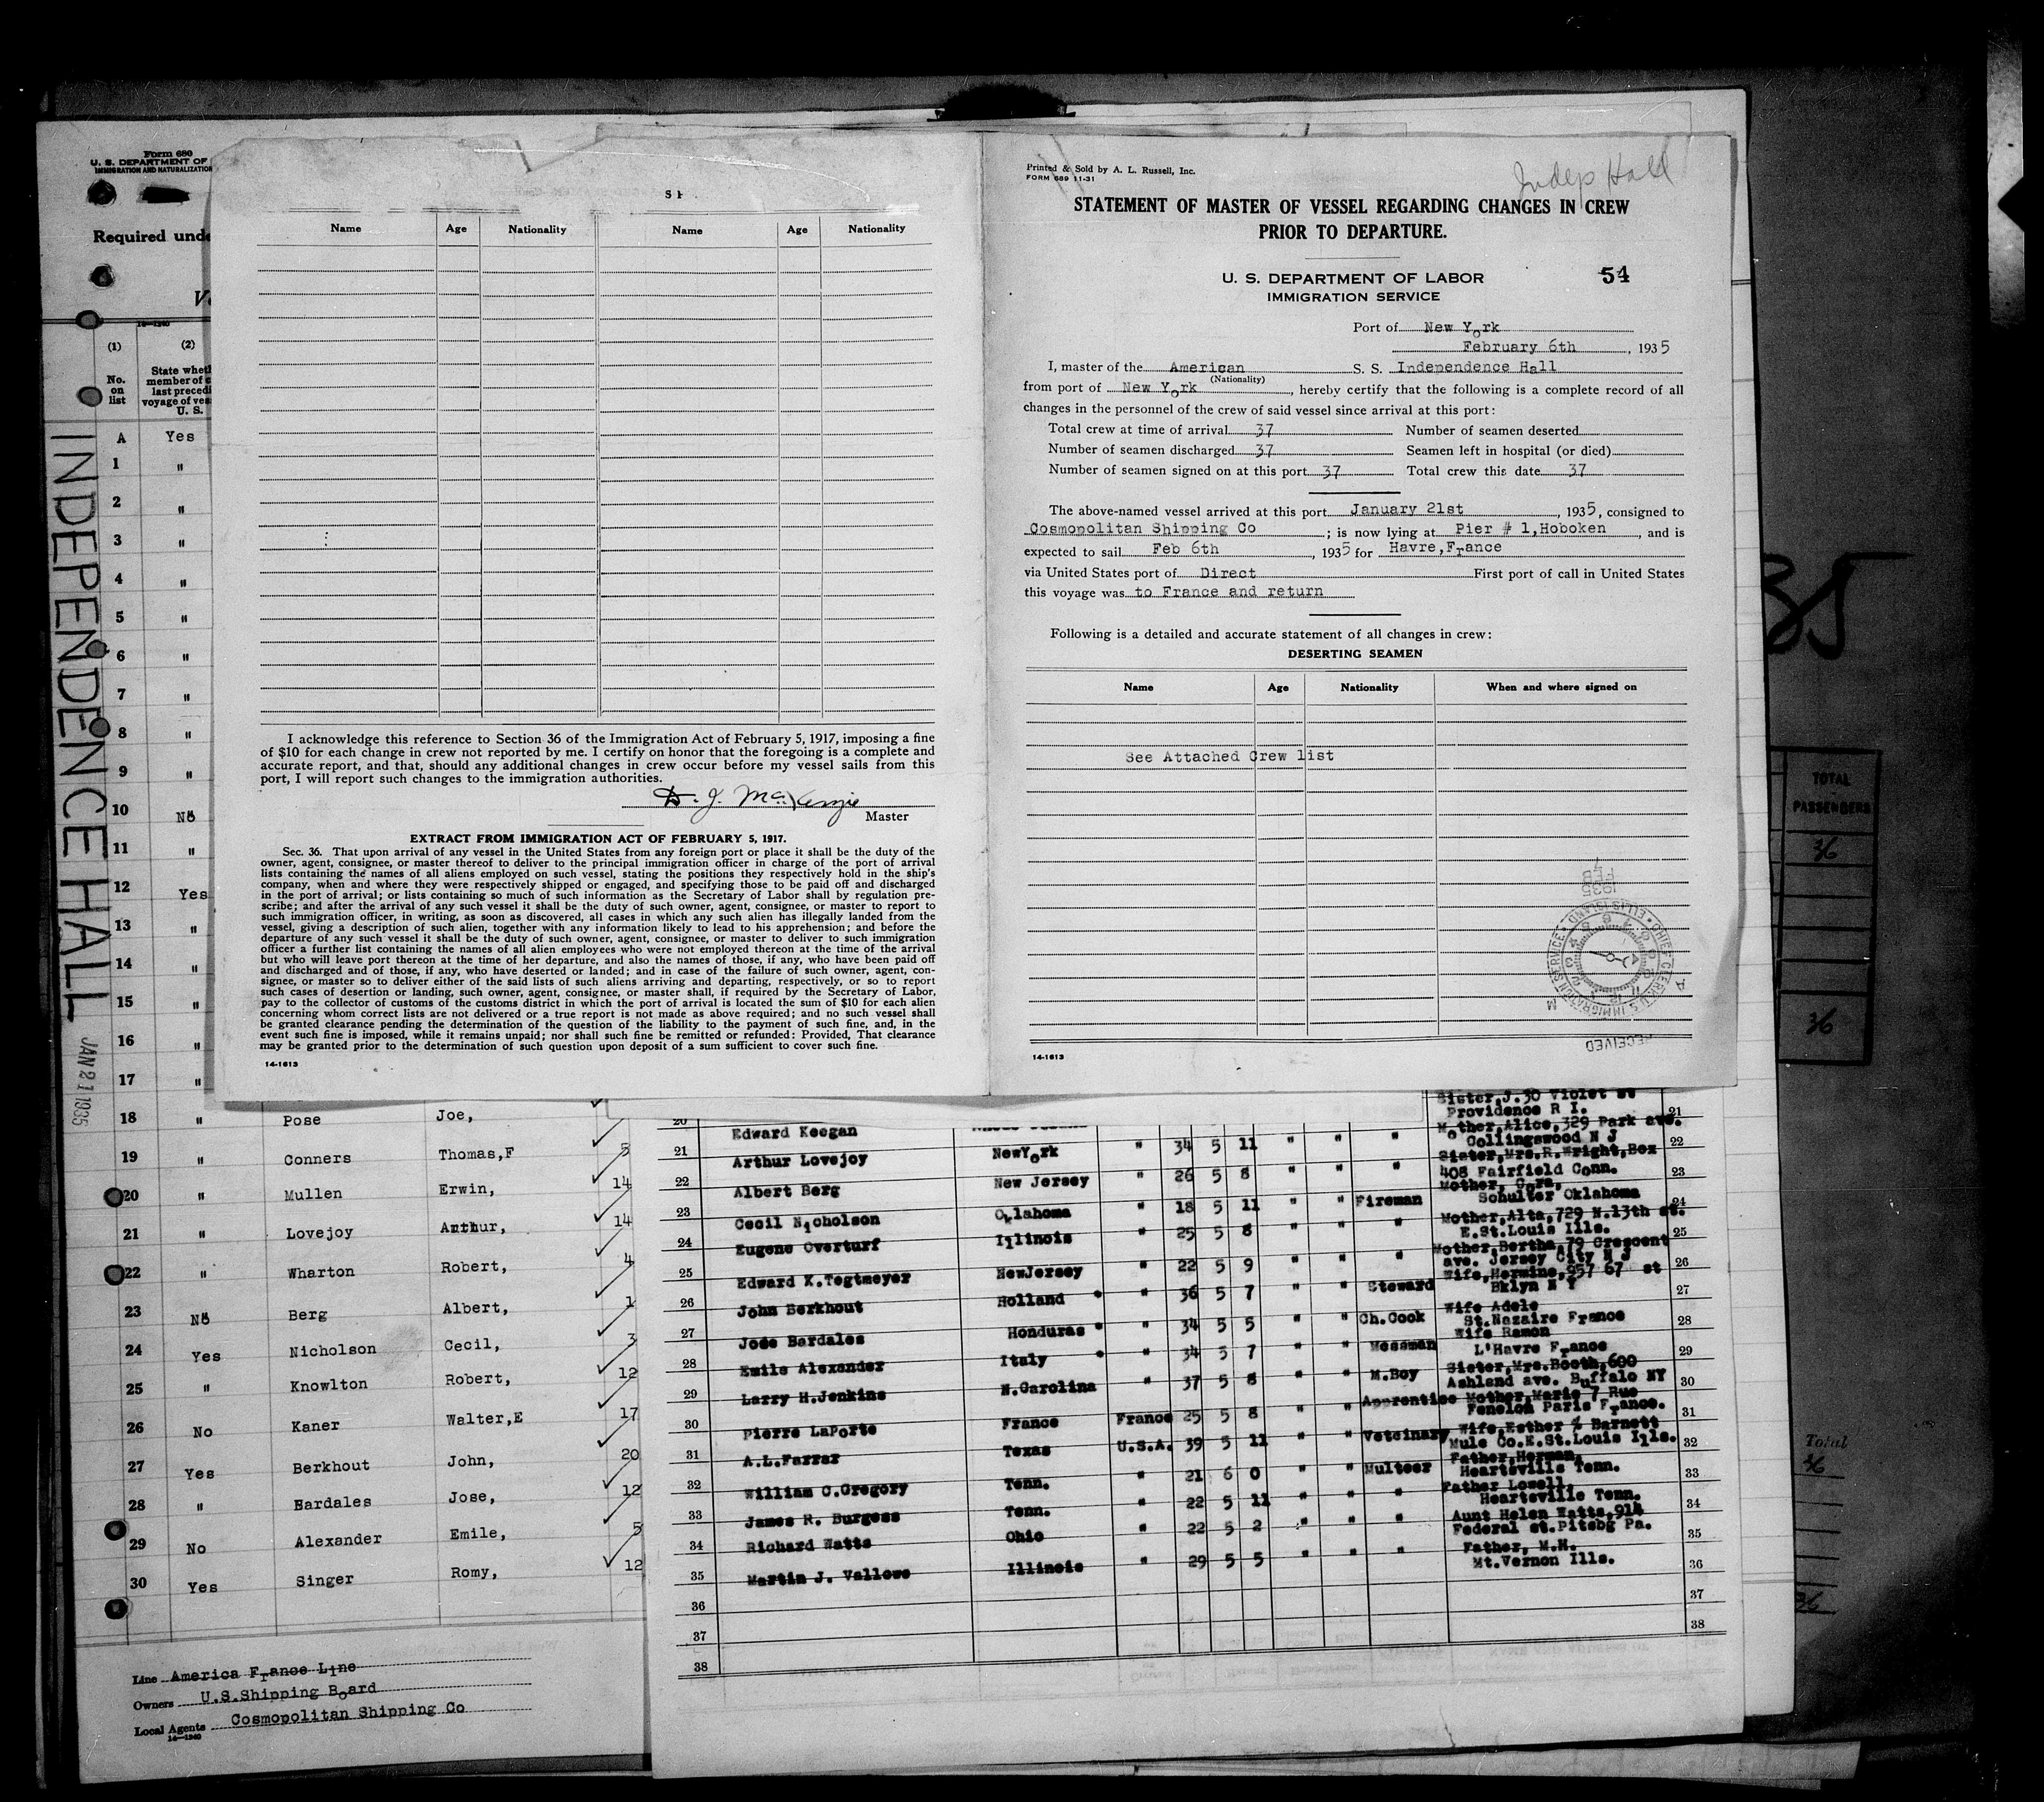 Form 680
U. S. DEPARTMENT OF
IMMIGRATION AND NATURALIZATION
Required unde
(1)
(2)
No.
on
list
State whet
member of c
last preced
voyage of ves
U. S.
INDEPENDENCE HALL
JAN 21 1935
A Yes
1 "
2 "
3 "
4 "
5 "
6 "
7 "
8 "
9 "
10 No
11 "
12 Yes
13 "
14 "
15 "
16 "
17 "
18 " Pose Joe,
19 " Conners Thomas,F 5
20 " Mullen Erwin, 14
21 " Lovejoy Arthur, 14
22 " Wharton Robert, 4
23 No Berg Albert, 1
24 Yes Nicholson Cecil, 3
25 " Knowlton Robert, 12
26 No Kaner Walter,E 17
27 Yes Berkhout John, 20
28 " Bardales Jose, 12
29 No Alexander Emile, 5
30 Yes Singer Romy, 12
Line America France Line
Owners U.S.Shipping Board
Local Agents Cosmopolitan Shipping Co
14—1240
Name Age Nationality Name Age Nationality
I acknowledge this reference to Section 36 of the Immigration Act of February 5, 1917, imposing a fine
of $10 for each change in crew not reported by me. I certify on honor that the foregoing is a complete and
accurate report, and that, should any additional changes in crew occur before my vessel sails from this
port, I will report such changes to the immigration authorities.
D. J. McKenzie
Master
EXTRACT FROM IMMIGRATION ACT OF FEBRUARY 5, 1917.
Sec. 36. That upon arrival of any vessel in the United States from any foreign port or place it shall be the duty of the
owner, agent, consignee, or master thereof to deliver to the principal immigration officer in charge of the port of arrival
lists containing the names of all aliens employed on such vessel, stating the positions they respectively hold in the ship's
company, when and where they were respectively shipped or engaged, and specifying those to be paid off and discharged
in the port of arrival; or lists containing so much of such information as the Secretary of Labor shall by regulation pre-
scribe; and after the arrival of any such vessel it shall be the duty of such owner, agent, consignee, or master to report to
such immigration officer, in writing, as soon as discovered, all cases in which any such alien has illegally landed from the
vessel, giving a description of such alien, together with any information likely to lead to his apprehension; and before the
departure of any such vessel it shall be the duty of such owner, agent, consignee, or master to deliver to such immigration
officer a further list containing the names of all alien employees who were not employed thereon at the time of the arrival
but who will leave port thereon at the time of her departure, and also the names of those, if any, who have been paid off
and discharged and of those, if any, who have deserted or landed; and in case of the failure of such owner, agent, con-
signee, or master so to deliver either of the said lists of such aliens arriving and departing, respectively, or so to report
such cases of desertion or landing, such owner, agent, consignee, or master shall, if required by the Secretary of Labor,
pay to the collector of customs of the customs district in which the port of arrival is located the sum of $10 for each alien
concerning whom correct lists are not delivered or a true report is not made as above required; and no such vessel shall
be granted clearance pending the determination of the question of the liability to the payment of such fine, and, in the
event such fine is imposed, while it remains unpaid; nor shall such fine be remitted or refunded: Provided, That clearance
may be granted prior to the determination of such question upon deposit of a sum sufficient to cover such fine.
14-1613
Printed & Sold by A. L. Russell, Inc.
FORM 689 11-31
Indep Hall
STATEMENT OF MASTER OF VESSEL REGARDING CHANGES IN CREW
PRIOR TO DEPARTURE.
U. S. DEPARTMENT OF LABOR
IMMIGRATION SERVICE
54
Port of New York
February 6th, 1935
I, master of the American S. S. Independence Hall
(Nationality)
from port of New York, hereby certify that the following is a complete record of all
changes in the personnel of the crew of said vessel since arrival at this port:
Total crew at time of arrival 37 Number of seamen deserted
Number of seamen discharged 37 Seamen left in hospital (or died)
Number of seamen signed on at this port 37 Total crew this date 37
The above-named vessel arrived at this port January 21st, 1935, consigned to
Cosmopolitan Shipping Co; is now lying at Pier # 1,Hoboken, and is
expected to sail Feb 6th, 1935 for Havre,France
via United States port of Direct First port of call in United States
this voyage was to France and return
Following is a detailed and accurate statement of all changes in crew:
DESERTING SEAMEN
Name Age Nationality When and where signed on
See Attached Crew list
RECEIVED
CHIEF CLERK U.S. IMMIGRATION SERVICE • ELLIS ISLAND
1935 FEB 7
14-1613
Sister,J.30 Violet st
20 Edward Keegan Providence R I. 21
Mother,Alice,329 Park ave.
21 Arthur Lovejoy NewYork " 34 5 11 " " " Collingswood N J 22
Sister,Mrs.R.Wright,Box
22 Albert Berg New Jersey " 26 5 8 " " " 408 Fairfield Conn. 23
Mother, Cora,
23 Cecil Nicholson Oklahoma " 18 5 11 " " Fireman Schulter Oklahoma 24
Mother,Alta,729 N.13th st.
24 Eugene Overturf Illinois " 25 5 8 " " " E.St.Louis Ills. 25
Mother,Bertha,79 Crescent
25 Edward K.Tegtmeyer NewJersey " 22 5 9 " " " ave. Jersey City N J 26
Wife,Hermine,957 67 st
26 John Berkhout Holland " 36 5 7 " " Steward Bklyn N Y 27
Wife Adele
27 Jose Bardales Honduras " 34 5 5 " " Ch.Cook St.Nazaire France 28
Wife Ramon
28 Emile Alexander Italy " 34 5 7 " " Messman L'Havre France 29
Sister,Mrs.Booth,600
29 Larry H.Jenkins N.Carolina " 37 5 8 " " M.Boy Ashland ave. Buffalo NY 30
Mother,Marie 7 Rue
30 Pierre LaPorte France France 25 5 8 " " Apprentice Fenelon Paris France. 31
Wife,Esther % Barnett
31 A.L.Farrar Texas U.S.A. 39 5 11 " " Vetcinary Mule Co.E.St.Louis Ills. 32
Father,Herman,
32 William C.Gregory Tenn. " 21 6 0 " " Multeer Heartsville Tenn. 33
Father Lowell,
33 James R. Burgess Tenn. " 22 5 11 " " " Heartsville Tenn. 34
Aunt Helen Watts,914
34 Richard Watts Ohio " 22 5 2 " " " Federal st.Pitsbg Pa. 35
Father, M.H.
35 Martin J. Vallowe Illinois " 29 5 5 " " " Mt.Vernon Ills. 36
36 37
37 38
38
35
TOTAL
PASSENGERS
36
36
Total
36
36